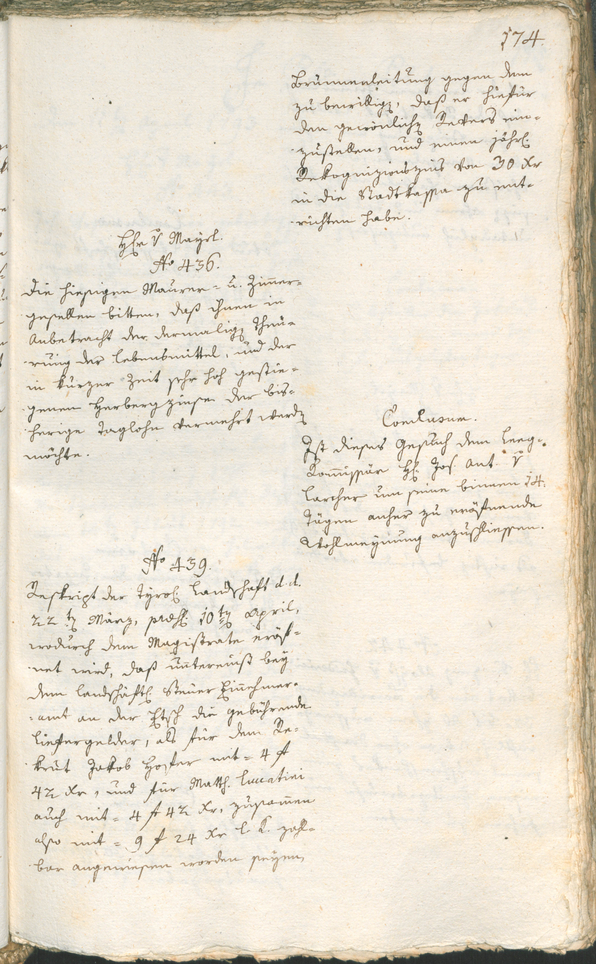 174.
Brunnenleitung gegen dem
zu bewilligen, daß er hiefür
den gewönlichen Revers ein-
zustellen, und einen jährl.
Rekognizionszins von 30 Xr
in die Stadtkassa zu ent-
richten habe.
Hr. v. Maÿrl.
No 436.
Die hiesigen Maurer- u. Zimmer-
gesellen bitten, daß ihnen in
Anbetracht der dermalig Theu-
rung der Lebensmittel, und der
in kurzer Zeit sehr hoch gestie-
genen Herbergzinsen der bis-
herige Taglohn vermehrt werden
möchte.
Conclusum.
Ist dieses Gesuch dem
Kommissär H. Jos. Ant. v.
Larcher um seine binnen 14.
Tägen anher zu eröffnende
Wohlmeynung anzuschliessen.
No 439.
Reskript der Tyrol. Landschaft d.d.
22.ten März, 10ten April,
wodurch dem Magistrate eröff-
net wird, daß untereinst bey
dem landschäftl. Steuer Einnehmer-
amt an der Etsch die gebührende
Liefergelder, als für dem Re-
krut Jakob Hofer mit = 4 f
42 Xr, und für Matth. Lucatini
auch mit = 4 f 42 Xr, zusammen
also mit = 9 f 24 Xr zahl-
bar angewiesen worden seyen,